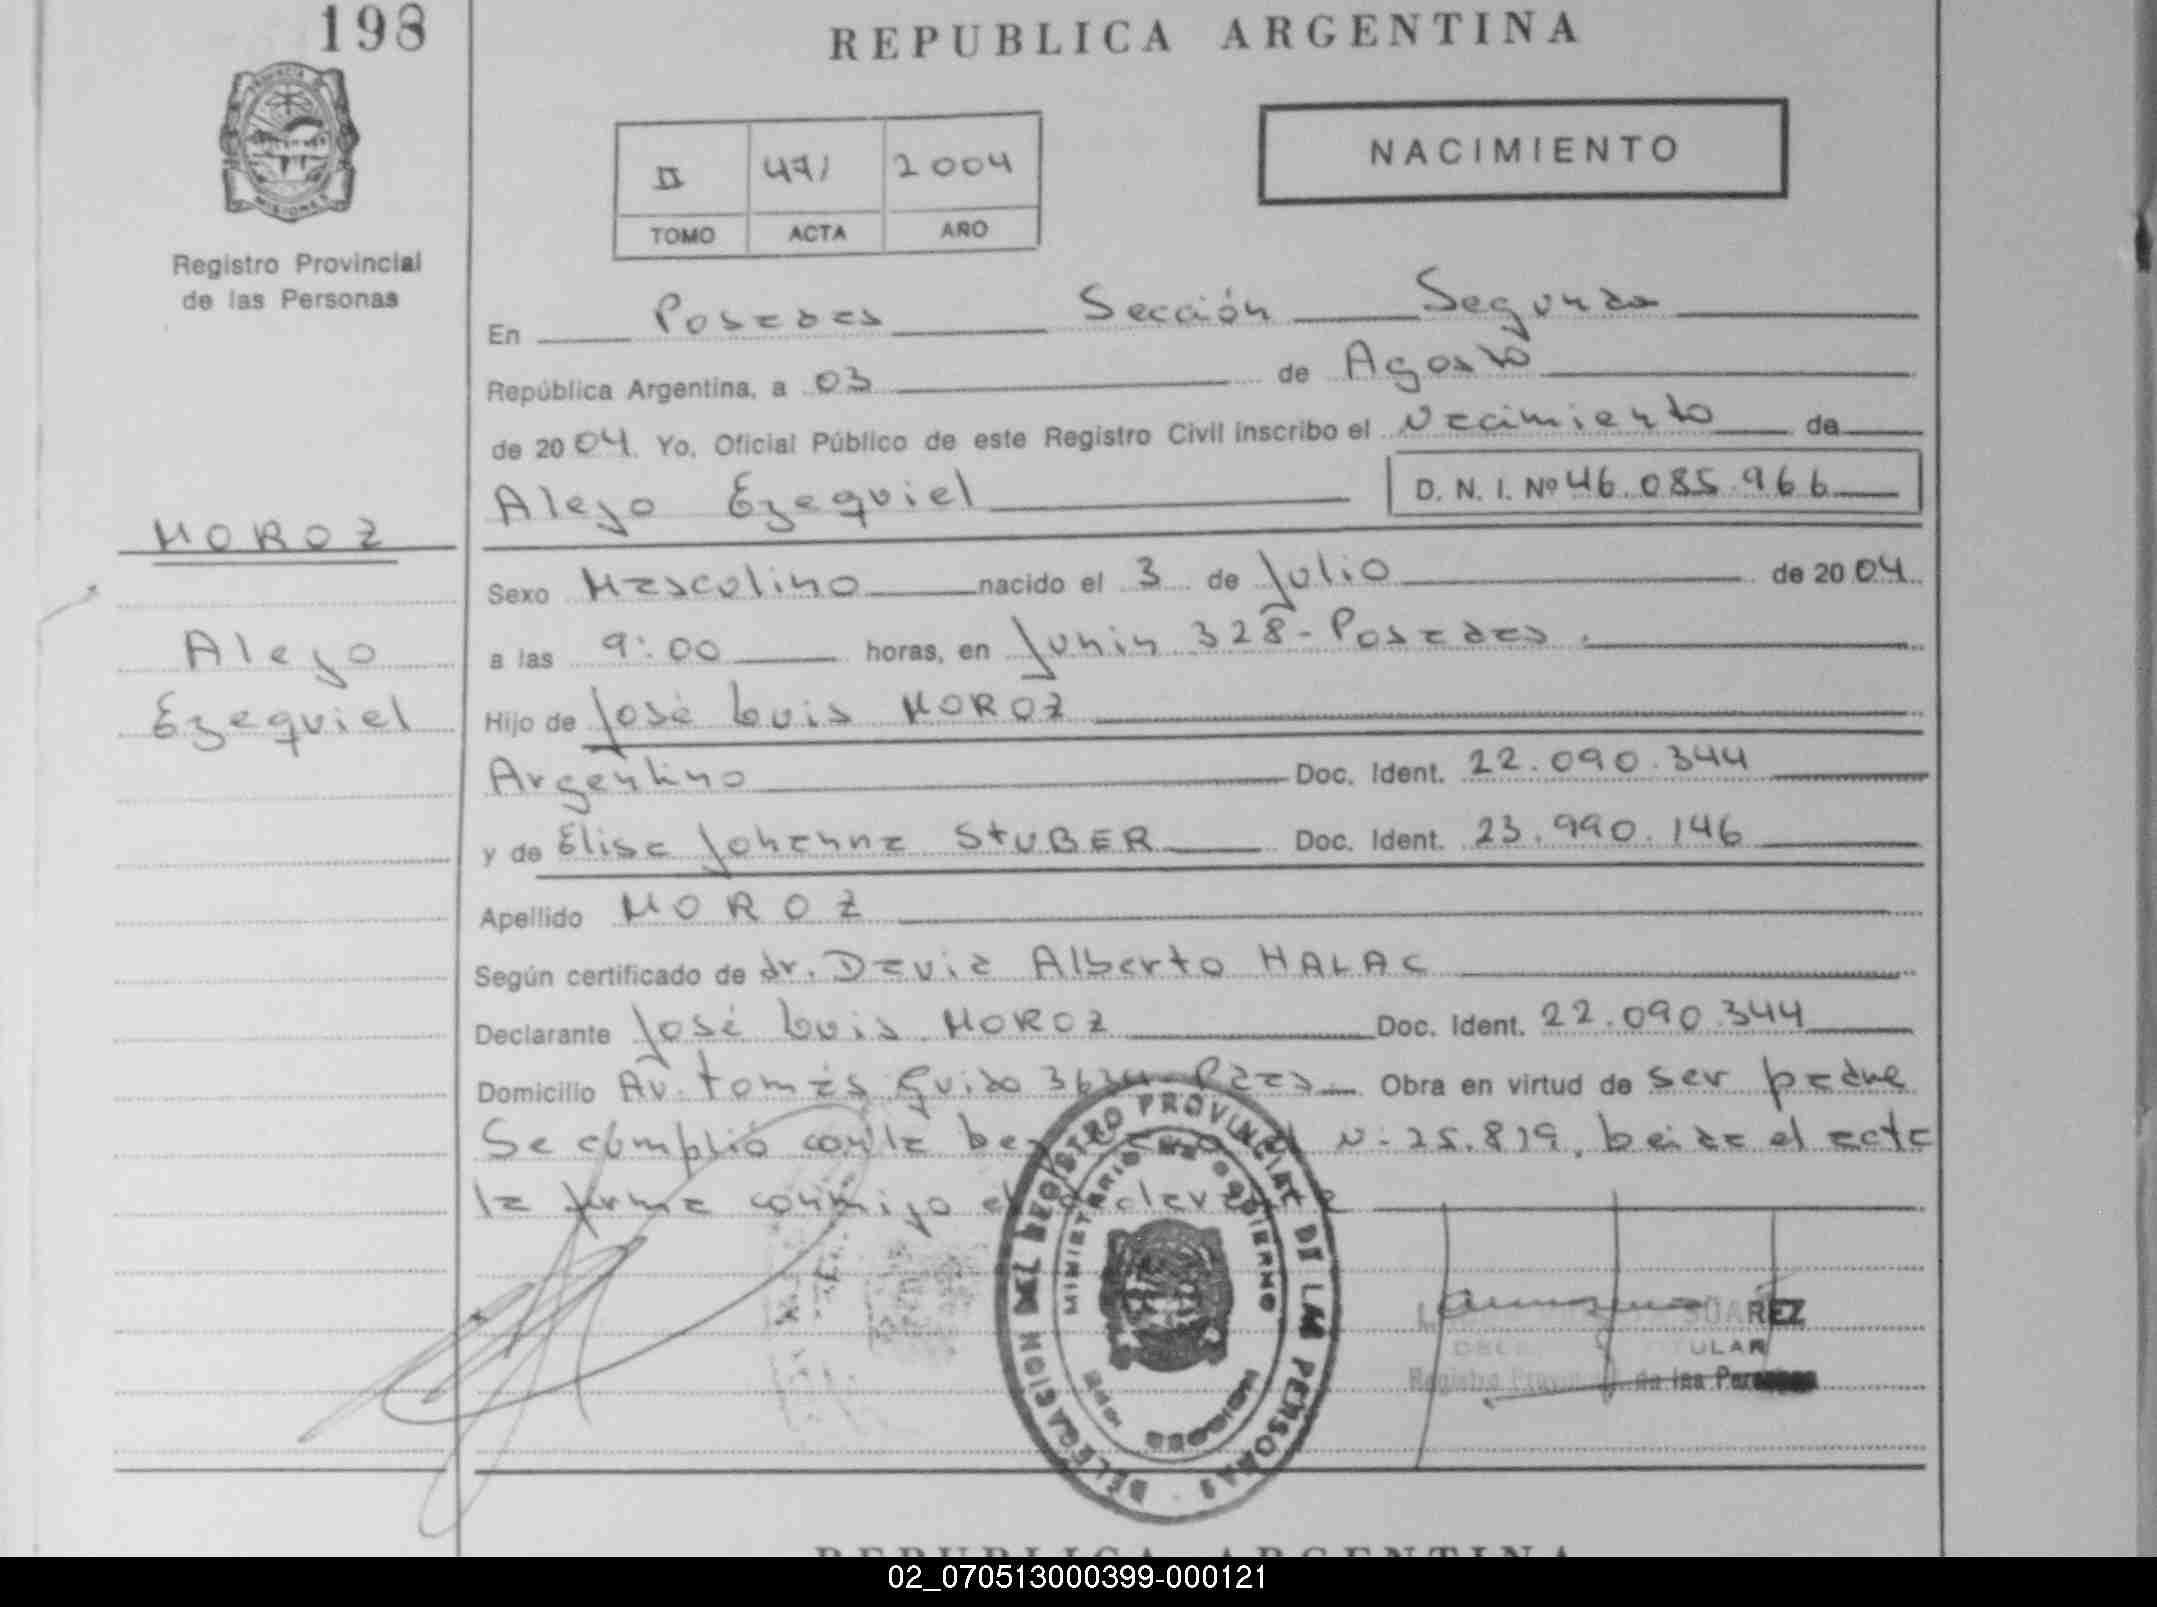 198
REPUBLICA ARGENTINA
PROVINCIA
MISIONES
NACIMIENTO
II 471 2004
TOMO ACTA AÑO
Registro Provincial
de las Personas
En Posadas Sección Segunda
República Argentina, a 03 de Agosto
de 2004. Yo, Oficial Público de este Registro Civil inscribo el Nacimiento de
Alejo Ezequiel D. N. I. Nº 46.085.966
MOROZ
Alejo
Ezequiel
Sexo Masculino nacido el 3 de Julio de 2004
a las 9:00 horas, en Junin 328 - Posadas.
Hijo de José Luis MOROZ
Argentino Doc. Ident. 22.090.344
y de Elisa Johanna StUBER Doc. Ident. 23.990.146
Apellido MOROZ
Según certificado de dr. David Alberto HALAC
Declarante José Luis MOROZ Doc. Ident. 22.090.344
Domicilio Av. tomás Guido Pdas. Obra en virtud de ser padre
Se cumplió con la N: 25.819, leida el acta
la firma conmigo el declarante
DELEGACION DEL REGISTRO PROVINCIAL DE LAS PERSONAS
MINISTERIO DE GOBIERNO
MISIONES
SUAREZ
TITULAR
Registro Provincial de las Personas
REPUBLICA ARGENTINA
02_070513000399-000121